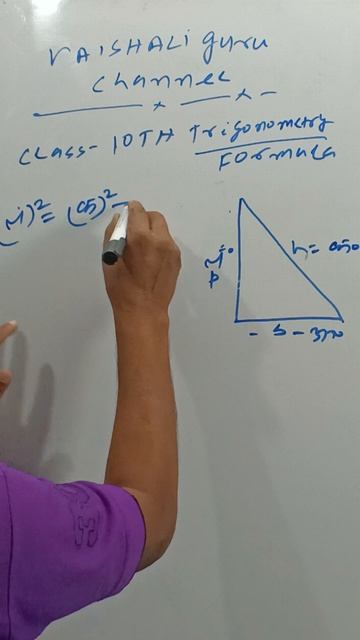 VAISHALI guru
Channel
CLASS- 10TH Trigonometry
FORMULA
(लं)² = (कर्ण)² -
लं०
p
h = कर्ण०
- b -